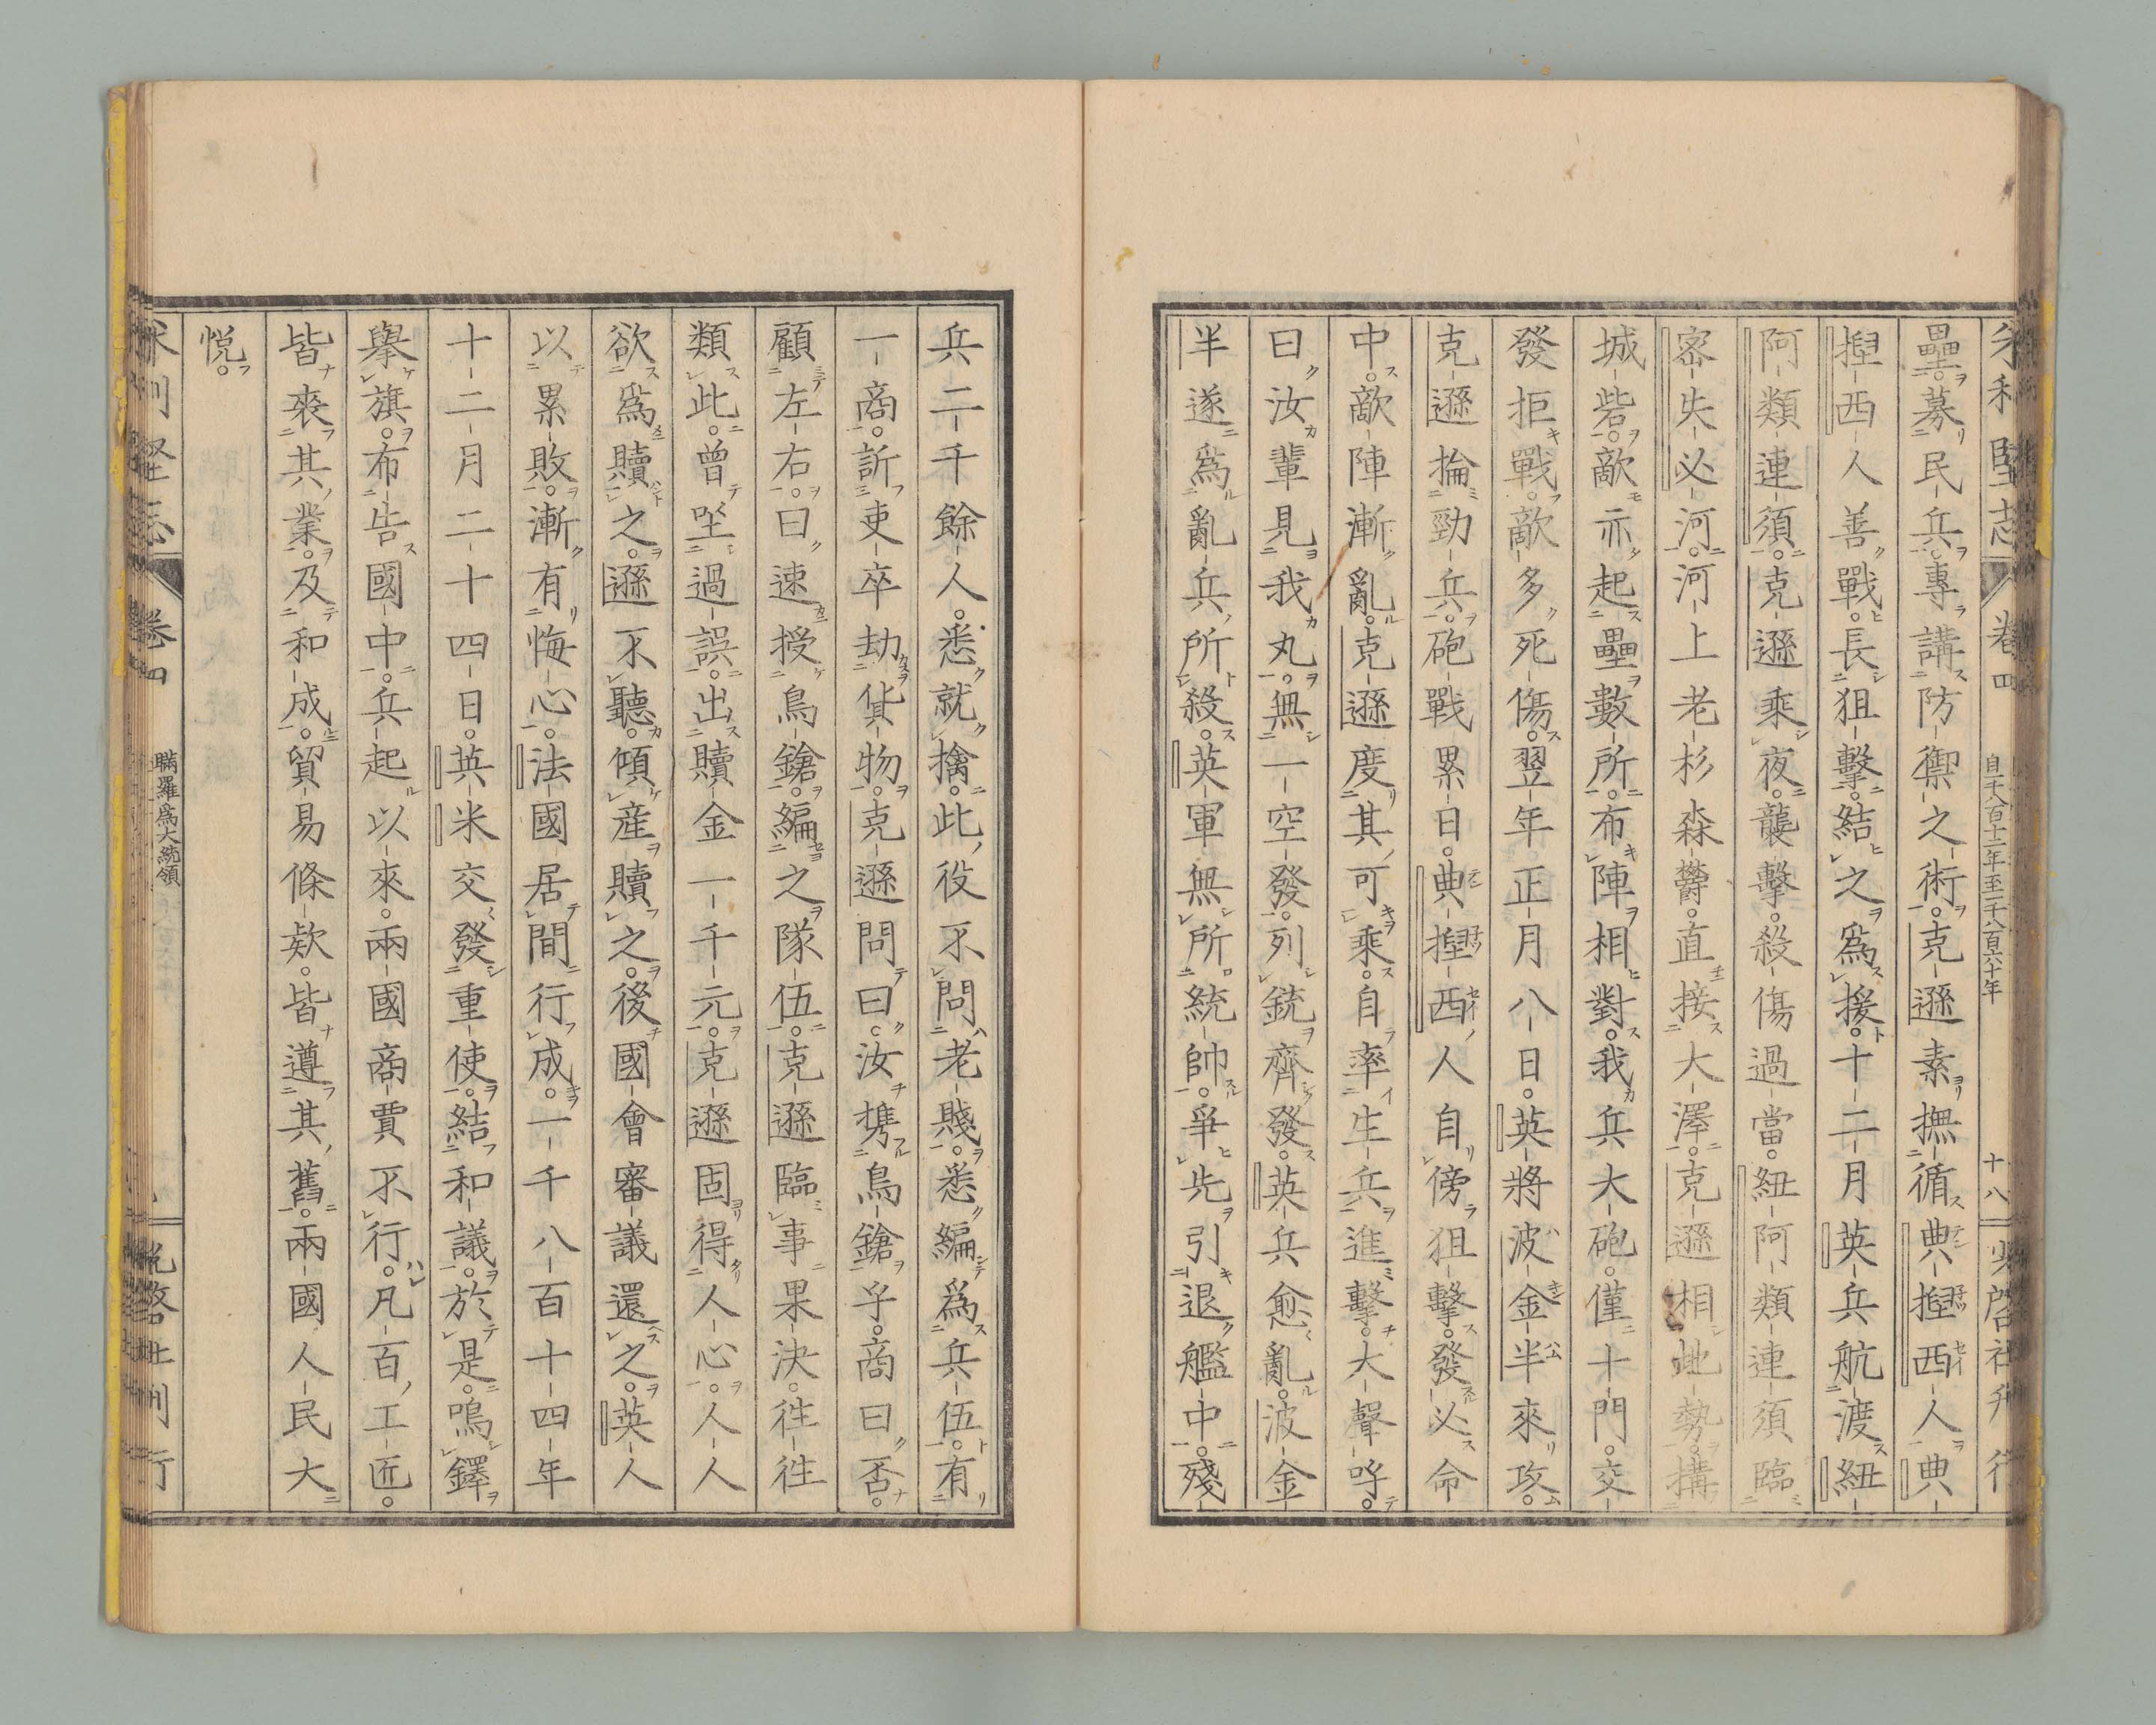 米利堅志 卷四 自一千八百十二年至一千八百六十年 十八
壘。募民兵。專講防禦之術。克遜素撫循典捏西人。典
捏西人善戰。長狙擊。結之爲援。十二月英兵航渡紐
阿類連須。克遜乘夜。襲擊。殺傷過當。紐阿類連須臨
密失必河。河上老杉森欝。直接大澤。克遜相地勢。搆
城砦。敵亦起壘數所。布陣相對。我兵大砲。僅十門。交
發拒戰。敵多死傷。翌年正月八日。英將波金半來攻。
克遜掄勁兵。砲戰累日。典捏西人自傍狙擊。發必命
中。敵陣漸亂。克遜度其可乘。自率生兵進擊。大聲呼
曰。汝輩見我丸。無一空發。列銃齊發。英兵愈亂。波金
半遂爲亂兵所殺。英軍無所統帥。爭先引退艦中。殘
兵二千餘人。悉就擒。此役不問老賤。悉編爲兵伍。有
一商。訢吏卒劫貨物。克遜問曰。汝携鳥鎗乎。商曰。否。
顧左右。曰。速授鳥鎗。編之隊伍。克遜臨事果決。往往
類此。曾坐過誤。出贖金一千元。克遜固得人心。人人
欲爲贖之。遜不聽。傾産贖之。後國會審議還之。英人
以累敗。漸有悔心。法國居間行成。一千八百十四年
十二月二十四日。英米交發重使。結和議。於是。鳴鐸
擧旗。布告國中。兵起以來。兩國商賈不行。凡百工匠。
皆喪其業。及和成。貿易條款。皆遵其舊。兩國人民大
悅。
卷四 瞞羅爲大統領